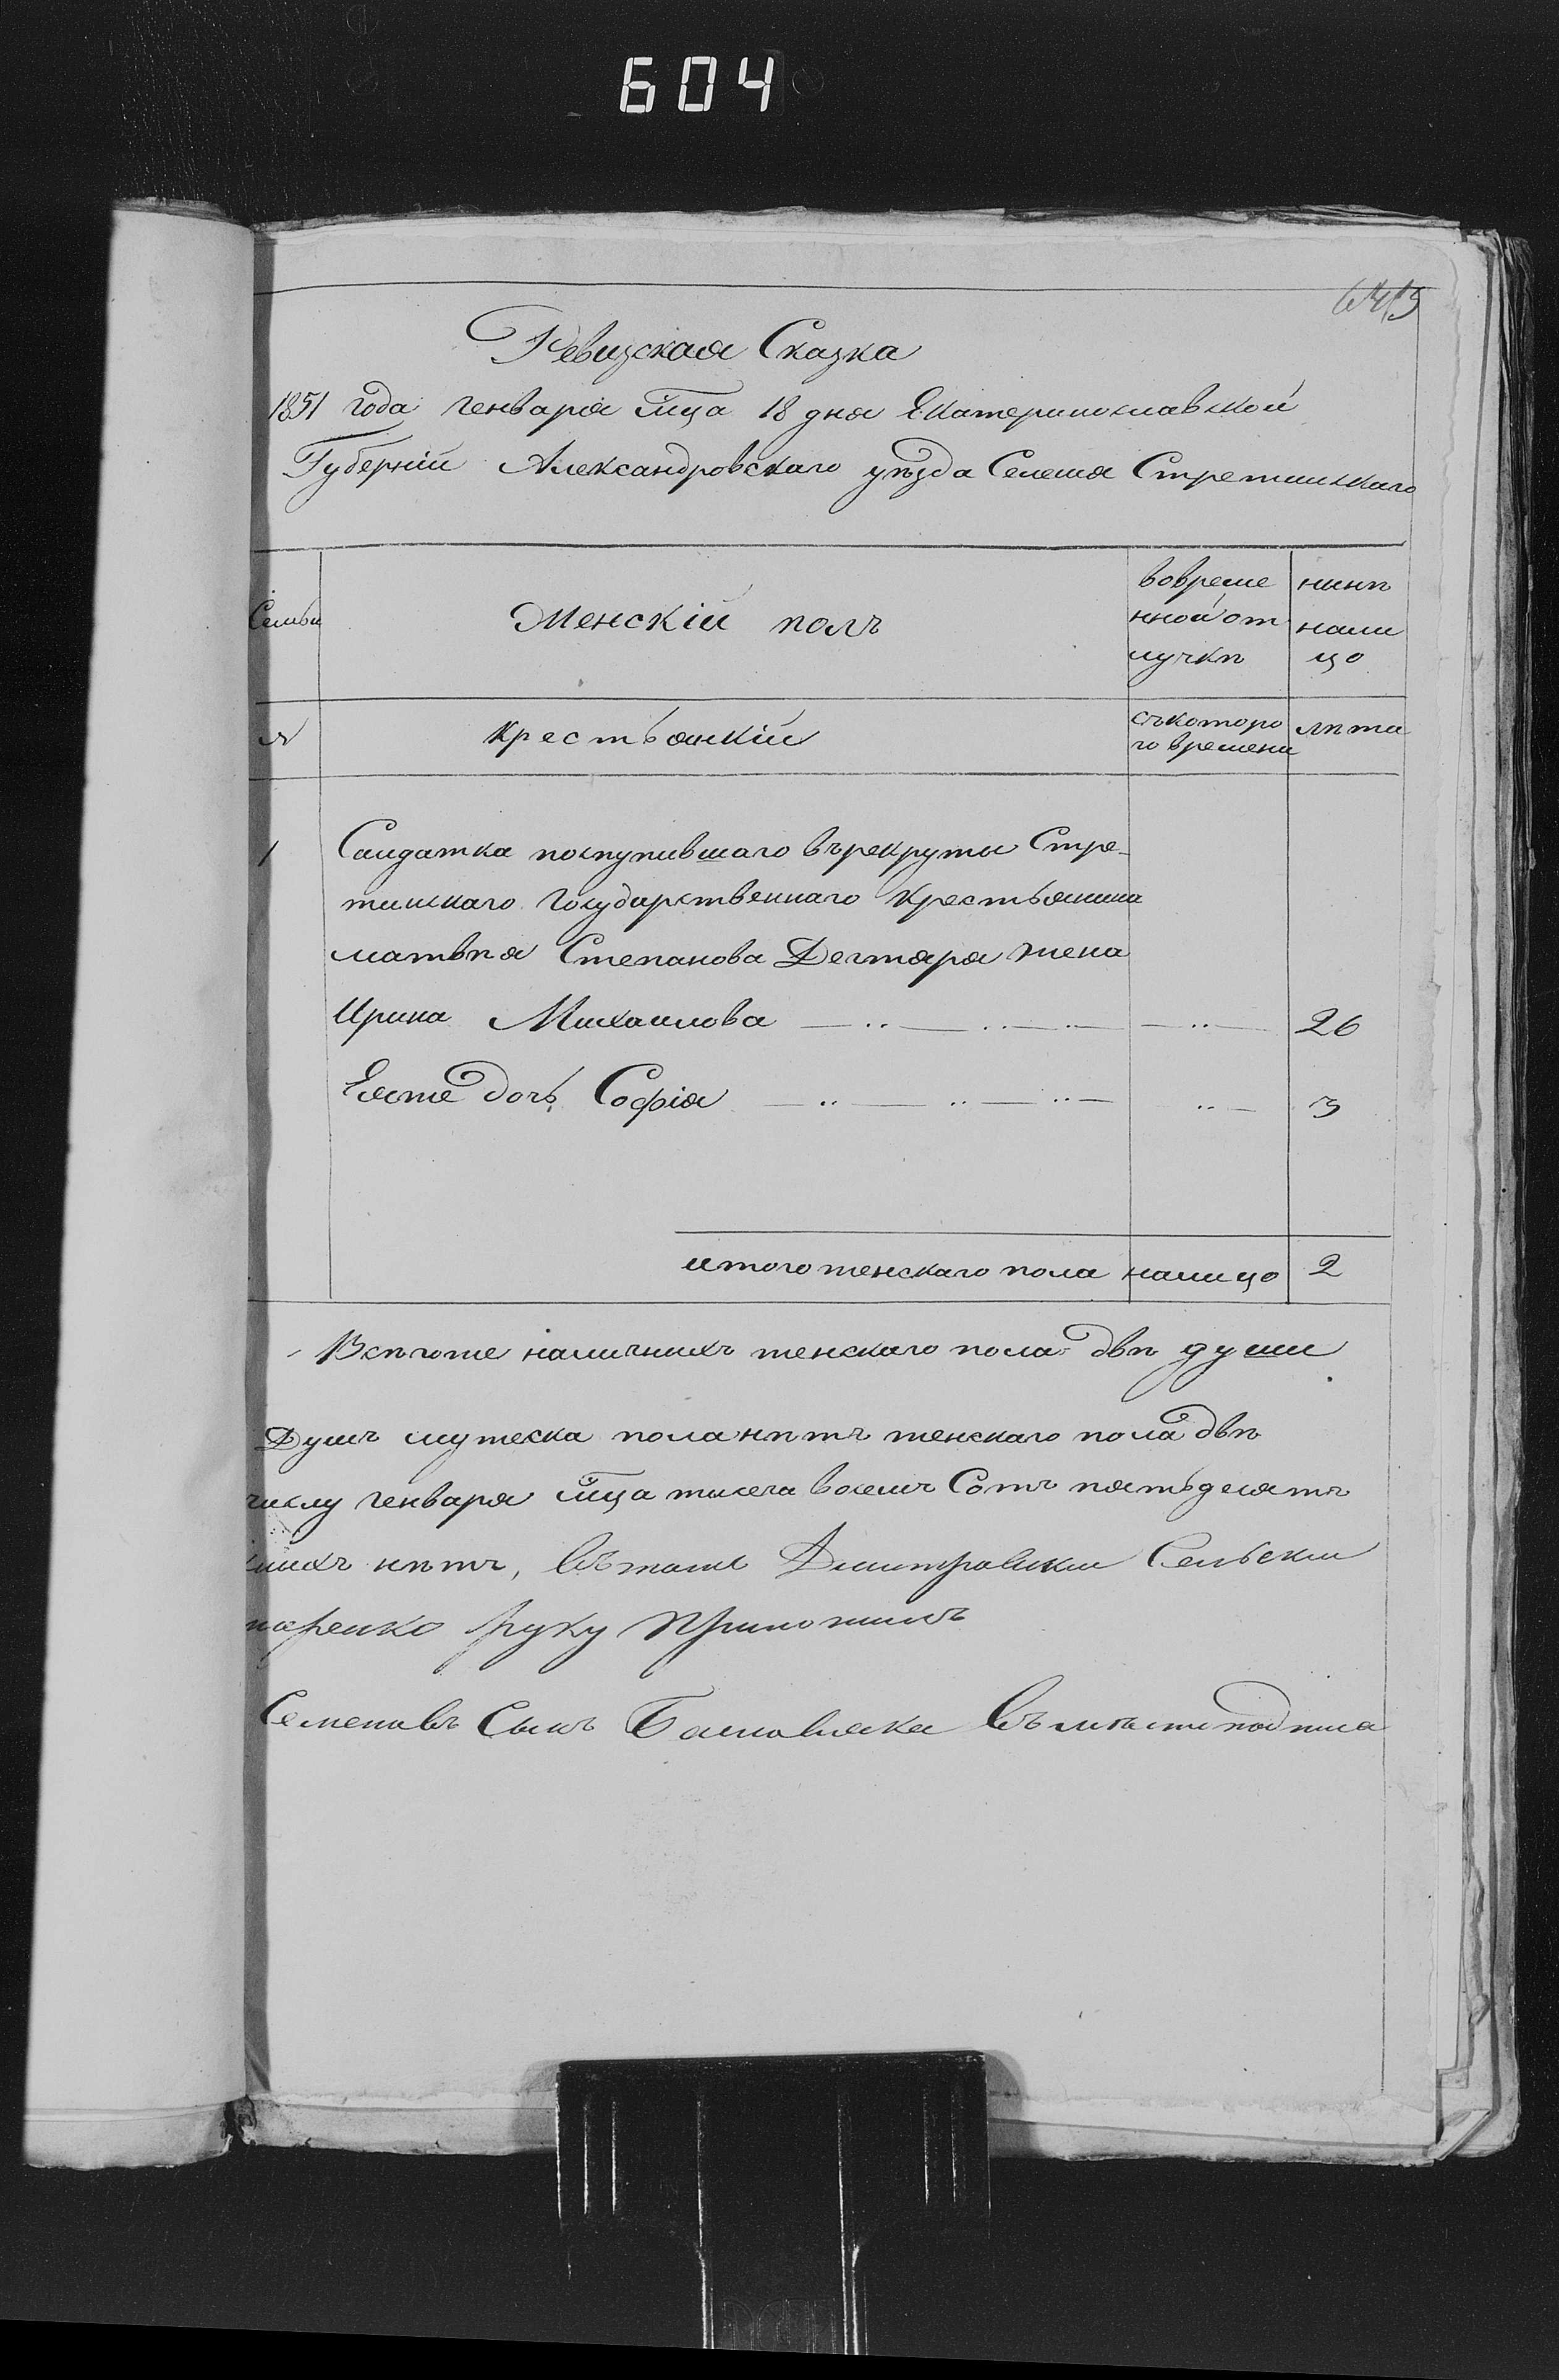 604
Ревизская Сказка
1851 года генваря мца 18 дня Екатеринославской
Губерніи Александровскаго уѣзда Селенія Стретинскаго
Семьи
Женскій полъ
вовреме
нной от
лучкѣ
нинѣ
нали
цо
№
крестьянкій
съкоторо
го времени
лѣта
1
Салдатка поступившаго върекруты Стре-
тинскаго Государственнаго крестьянина
матвѣя Степанова Дегтяра жена
Ирина Михаилова 26
Еяже дочь Софія 3
итого женскаго пола налицо 2
Всѣгоже наличнихъ женскаго пола двѣ души
Душъ мужеска пола нѣтъ женскаго пола двѣ
числу генваря мца тысеча восемъ Сотъ пятьдесятъ
нихъ нѣтъ, Димитровски Сельски
наренко руку приложилъ
Семеновъ Сынъ